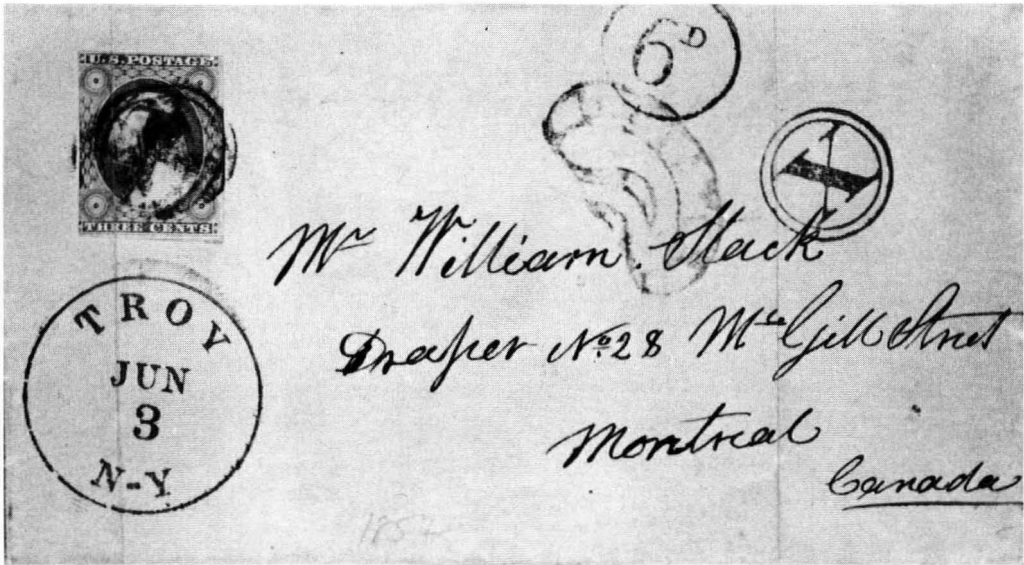 U.S. POSTAGE
THREE CENTS
6D
1
Mr William Slack
Draper No. 28 McGill Street
Montreal
Canada
TROY
JUN
3
N-Y
1857